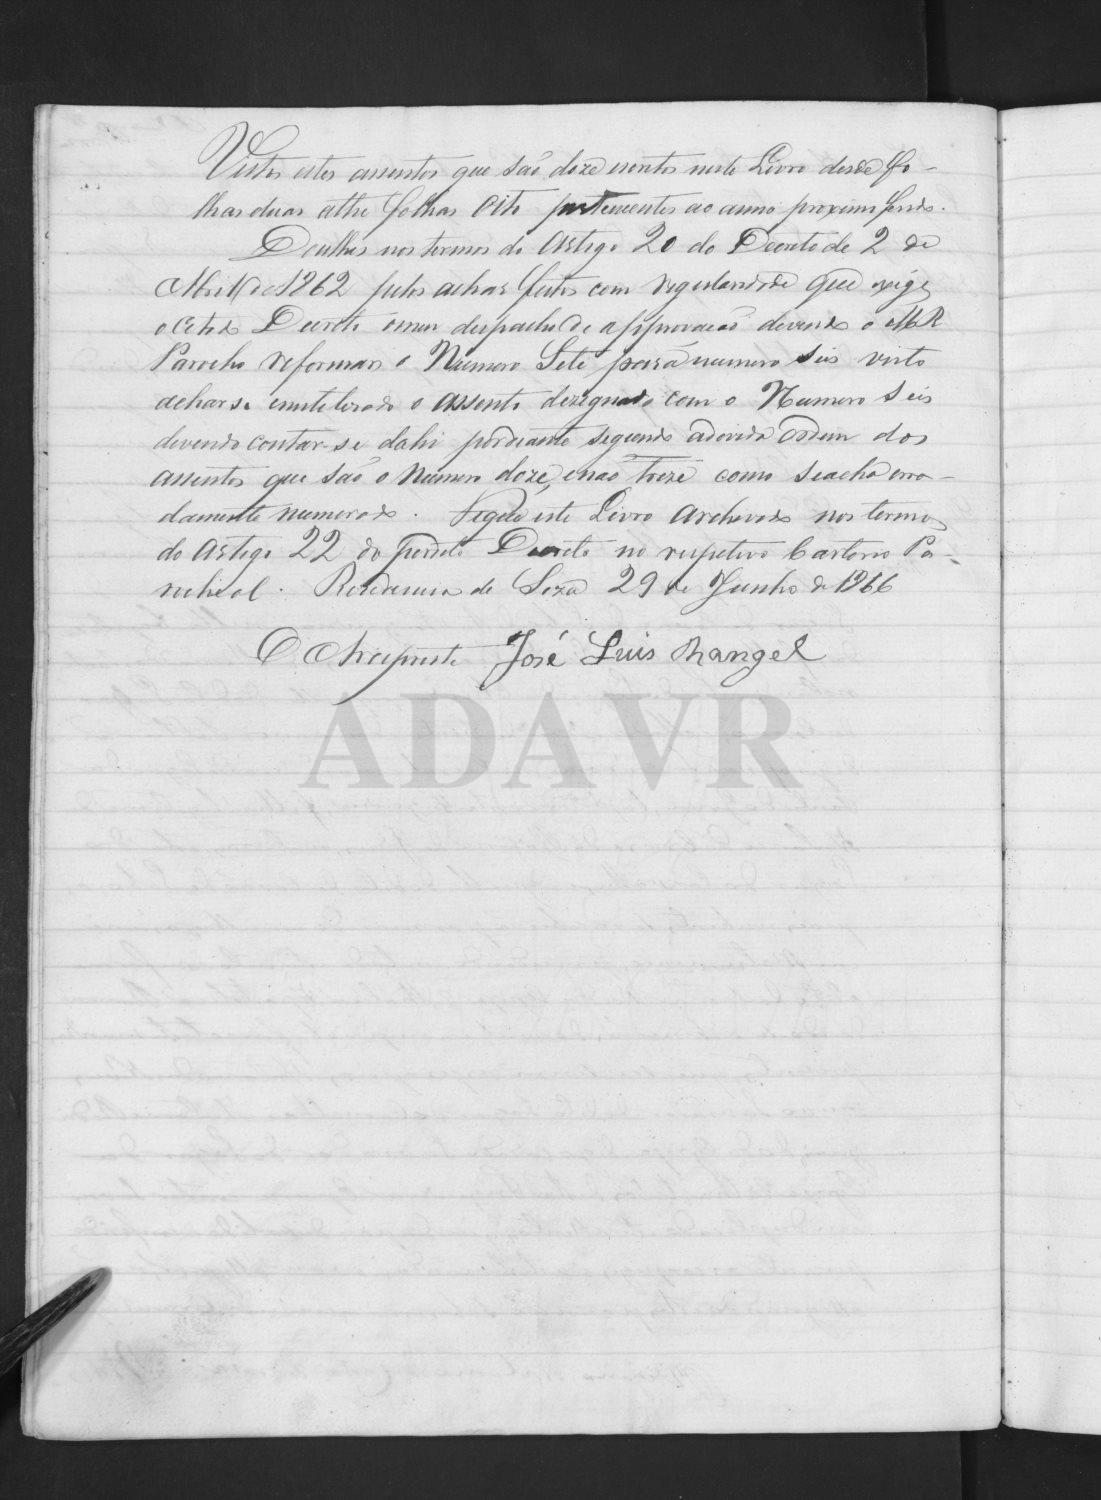 Vistos estes assentos que são doze escritos neste Livro desde fo-
lhas duas athe folhas Oito pertencentes ao anno proximo findo.
Doulhes nos termos do Artigo 20 do Decreto de 2 de
Abril de 1862 pelos achar feitos com regularidade que exige
o citado Decreto o meu despacho de approvação devendo o M R
Parocho reformar o Numero Sete para numero seis visto
achar-se inutelizado o assento dezignado com o Numero Seis
devendo contar-se dahi pordiante segundo a devida ordem dos
assentos que são o numero doze, e não treze como se acha erra-
damente numerado. Fique este Livro Archivado nos termos
do Artigo 22 do predito Decreto no respetivo Cartorio Pa-
rochial. Residencia de 29 de Junho de 1866
O Arcipreste José Luis Rangel
ADAVR